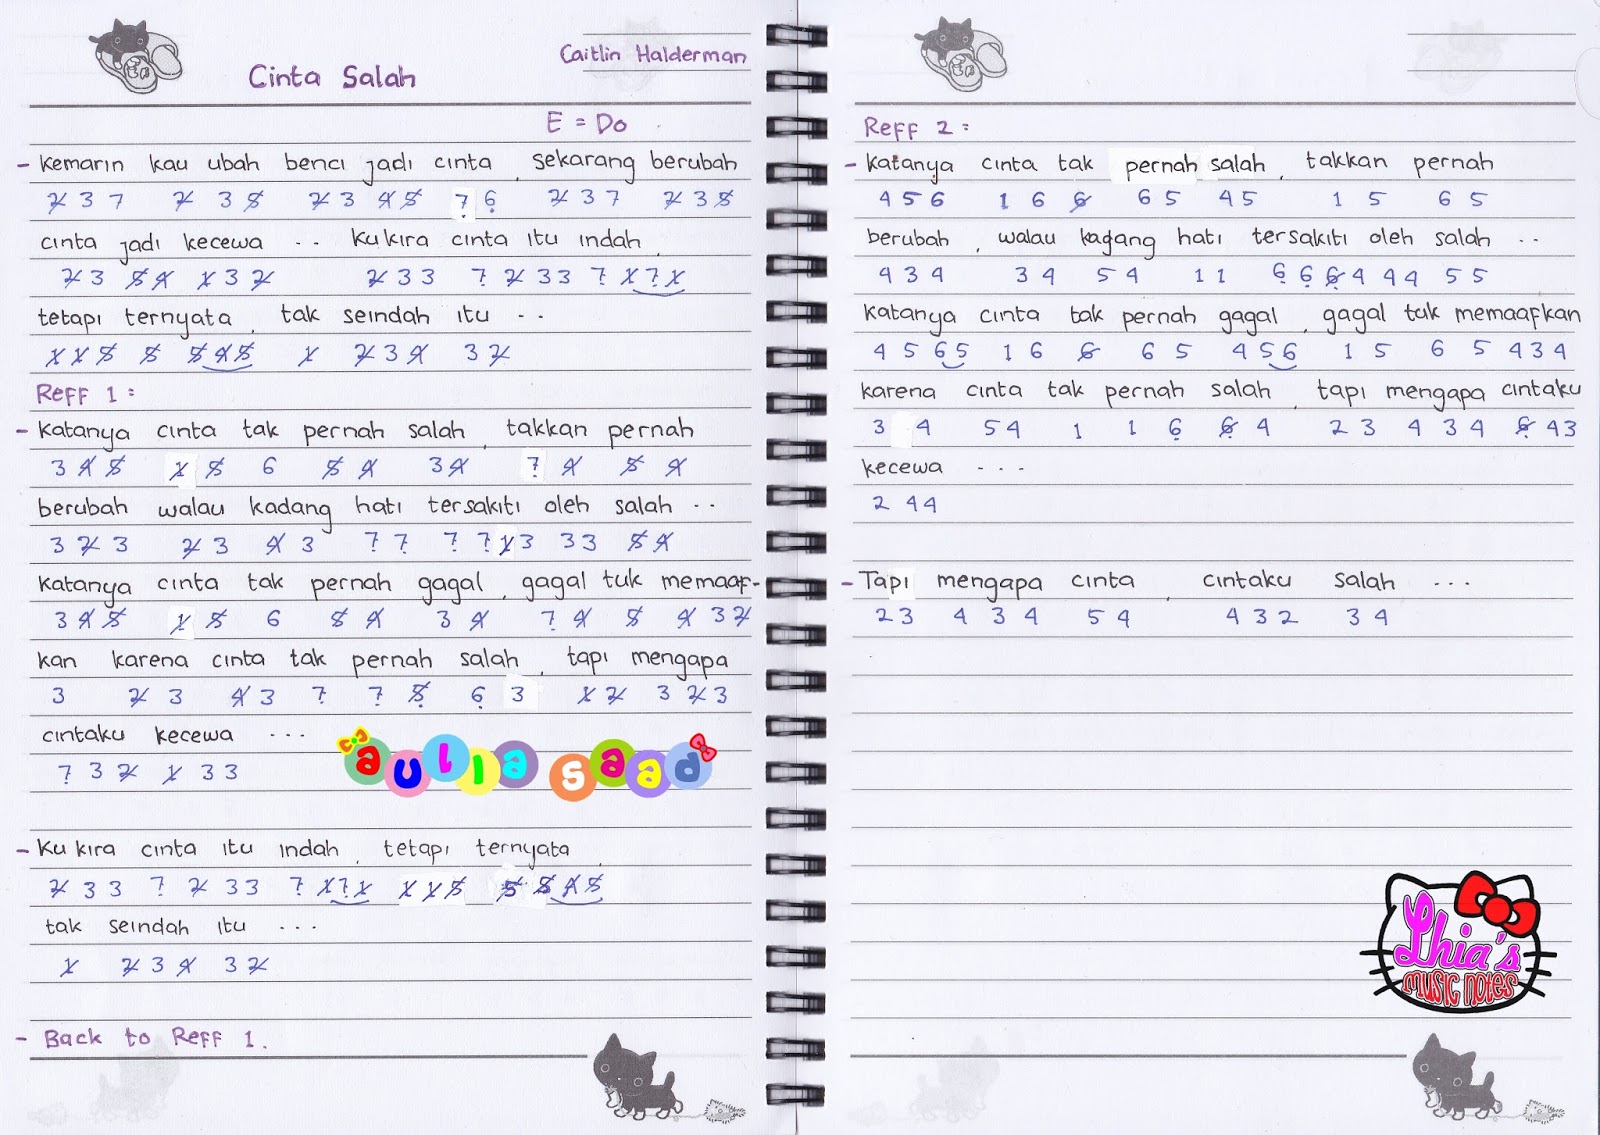 Cinta Salah
Caitlin Halderman
E = Do
- Kemarin kau ubah benci jadi cinta, sekarang berubah
2̸ 3 7 2̸ 3 5̸ 2̸ 3 4̸ 5̸ 7̣ 6̣ 2̸ 3 7 2̸ 3 5̸
cinta jadi kecewa ... Ku kira cinta itu indah,
2̸ 3 5̸ 4̸ 1̸ 3 2̸ 2̸ 3 3 7̣ 2̸ 3 3 7̣ 1̸ 7̣ 1̸
tetapi ternyata, tak seindah itu ...
1̸ 1̸ 5̸ 5̸ 5̸ 4̸ 5̸ 1̸ 2̸ 3 4̸ 3 2̸
Reff 1 :
- Katanya cinta tak pernah salah, takkan pernah
3 4̸ 5̸ 1̸ 5̸ 6 5̸ 4̸ 3 4̸ 7̣ 4̸ 5̸ 4̸
berubah walau kadang hati tersakiti oleh salah ..
3 2̸ 3 2̸ 3 4̸ 3 7̣ 7̣ 7̣ 7̣ 1̸ 3 3 3 5̸ 4̸
katanya cinta tak pernah gagal, gagal tuk memaaf-
3 4̸ 5̸ 1̸ 5̸ 6 5̸ 4̸ 3 4̸ 7̣ 4̸ 5̸ 4̸ 3 2̸
kan karena cinta tak pernah salah, tapi mengapa
3 2̸ 3 4̸ 3 7̣ 7̣ 5̸̣ 6̣ 3 1̸ 2̸ 3 2̸ 3
cintaku kecewa ...
7̣ 3 2̸ 1̸ 3 3
aulia saad
- Ku kira cinta itu indah, tetapi ternyata,
2̸ 3 3 7̣ 2̸ 3 3 7̣ 1̸ 7̣ 1̸ 1̸ 1̸ 5̸ 5̸ 5̸ 4̸ 5̸
tak seindah itu ...
1̸ 2̸ 3 4̸ 3 2̸
- Back to Reff 1.
Reff 2 :
- Katanya cinta tak pernah salah, takkan pernah
4 5 6 1 6 6̸ 6 5 4 5 1 5 6 5
berubah, walau kadang hati tersakiti oleh salah ..
4 3 4 3 4 5 4 1 1 6̣ 6̣ 6̸̣ 4 4 4 5 5
katanya cinta tak pernah gagal, gagal tuk memaafkan
4 5 6 5 1 6 6̸ 6 5 4 5 6 1 5 6 5 4 3 4
karena cinta tak pernah salah, tapi mengapa cintaku
3 4 5 4 1 1 6̣ 6̸̣ 4 2 3 4 3 4 6̸̣ 4 3
kecewa ...
2 4 4
- Tapi mengapa cinta, cintaku salah ...
2 3 4 3 4 5 4 4 3 2 3 4
Lhia's
music notes